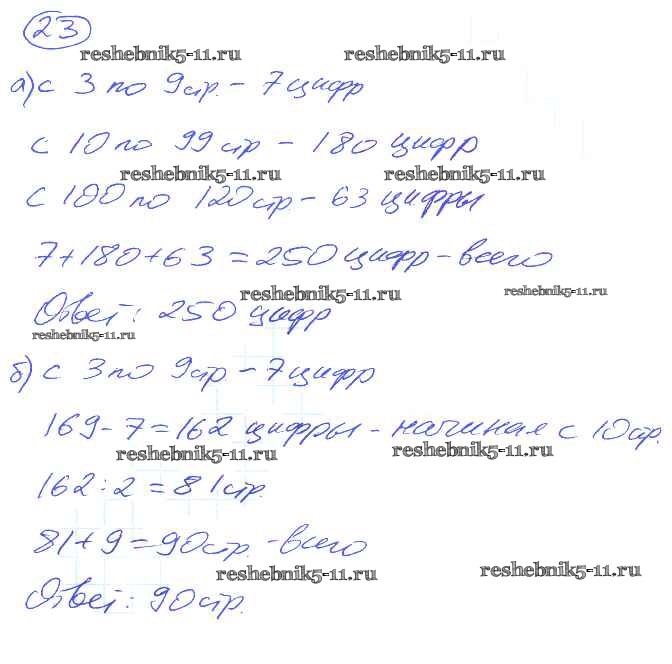 23
reshebnik5-11.ru reshebnik5-11.ru
а) с 3 по 9 стр. - 7 цифр
с 10 по 99 стр - 180 цифр
reshebnik5-11.ru reshebnik5-11.ru
с 100 по 120 стр - 63 цифры
7+180+63=250 цифр - всего
reshebnik5-11.ru reshebnik5-11.ru
Ответ: 250 цифр
reshebnik5-11.ru
б) с 3 по 9 стр - 7 цифр
169-7=162 цифры - начиная с 10 стр.
reshebnik5-11.ru reshebnik5-11.ru
162:2=81 стр.
81+9=90 стр. - всего
reshebnik5-11.ru reshebnik5-11.ru
Ответ: 90 стр.